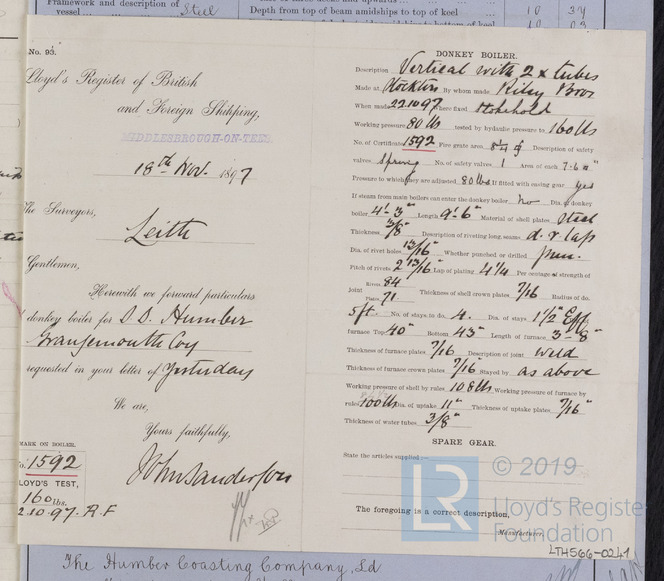 Framework and description of
vessel Steel
Depth from top of beam amidships to top of keel 10
No. 93.
Lloyd's Register of British
and Foreign Shipping,
MIDDLESBROUGH-ON-TEES
18th Nov. 1897
The Surveyors,
Leith
Gentlemen,
Herewith we forward particulars
donkey boiler for S.S. Humber
Grangemouth Coy
requested in your letter of Yesterday
We are,
Yours faithfully,
John Sanderson
MARK ON BOILER.
No. 1592
LLOYD'S TEST,
160 lbs.
2.10.97. R.F
DONKEY BOILER.
Description Vertical with 2 x tubes
Made at Stockton By whom made Riley Bros
When made 22.10.97 Where fixed Stokehold
Working pressure 80 lbs tested by hydraulic pressure to 160 lbs
No. of Certificate 1592 Fire grate area 8¼ Description of safety
valves Spring No. of safety valves 1 Area of each 7.6"
Pressure to which they are adjusted 80 lbs If fitted with easing gear yes
If steam from main boilers can enter the donkey boiler no Dia. of donkey
boiler 4'-3" Length 9'-6" Material of shell plates Steel
Thickness 3/8" Description of riveting long. seams d. r lap
Dia. of rivet holes 13/16" Whether punched or drilled pun.
Pitch of rivets 2 13/16" Lap of plating 4¼ Per centage of strength of
joint Rivets 84 Plates 71 Thickness of shell crown plates 7/16 Radius of do.
5 ft. No. of stays to do. 4. Dia. of stays 1½" Eff
furnace Top 40" Bottom 43" Length of furnace 3-8"
Thickness of furnace plates 7/16 Description of joint weld
Thickness of furnace crown plates 7/16" Stayed by as above
Working pressure of shell by rules 108 lbs Working pressure of furnace by
rules 100 lbs Dia. of uptake 11" Thickness of uptake plates 7/16"
Thickness of water tubes 3/8"
SPARE GEAR.
State the articles supplied:-
The foregoing is a correct description,
Manufacturer.
LR
© 2019
Lloyd's Register
Foundation
LTH566-0241
The Humber Coasting Company, Ld